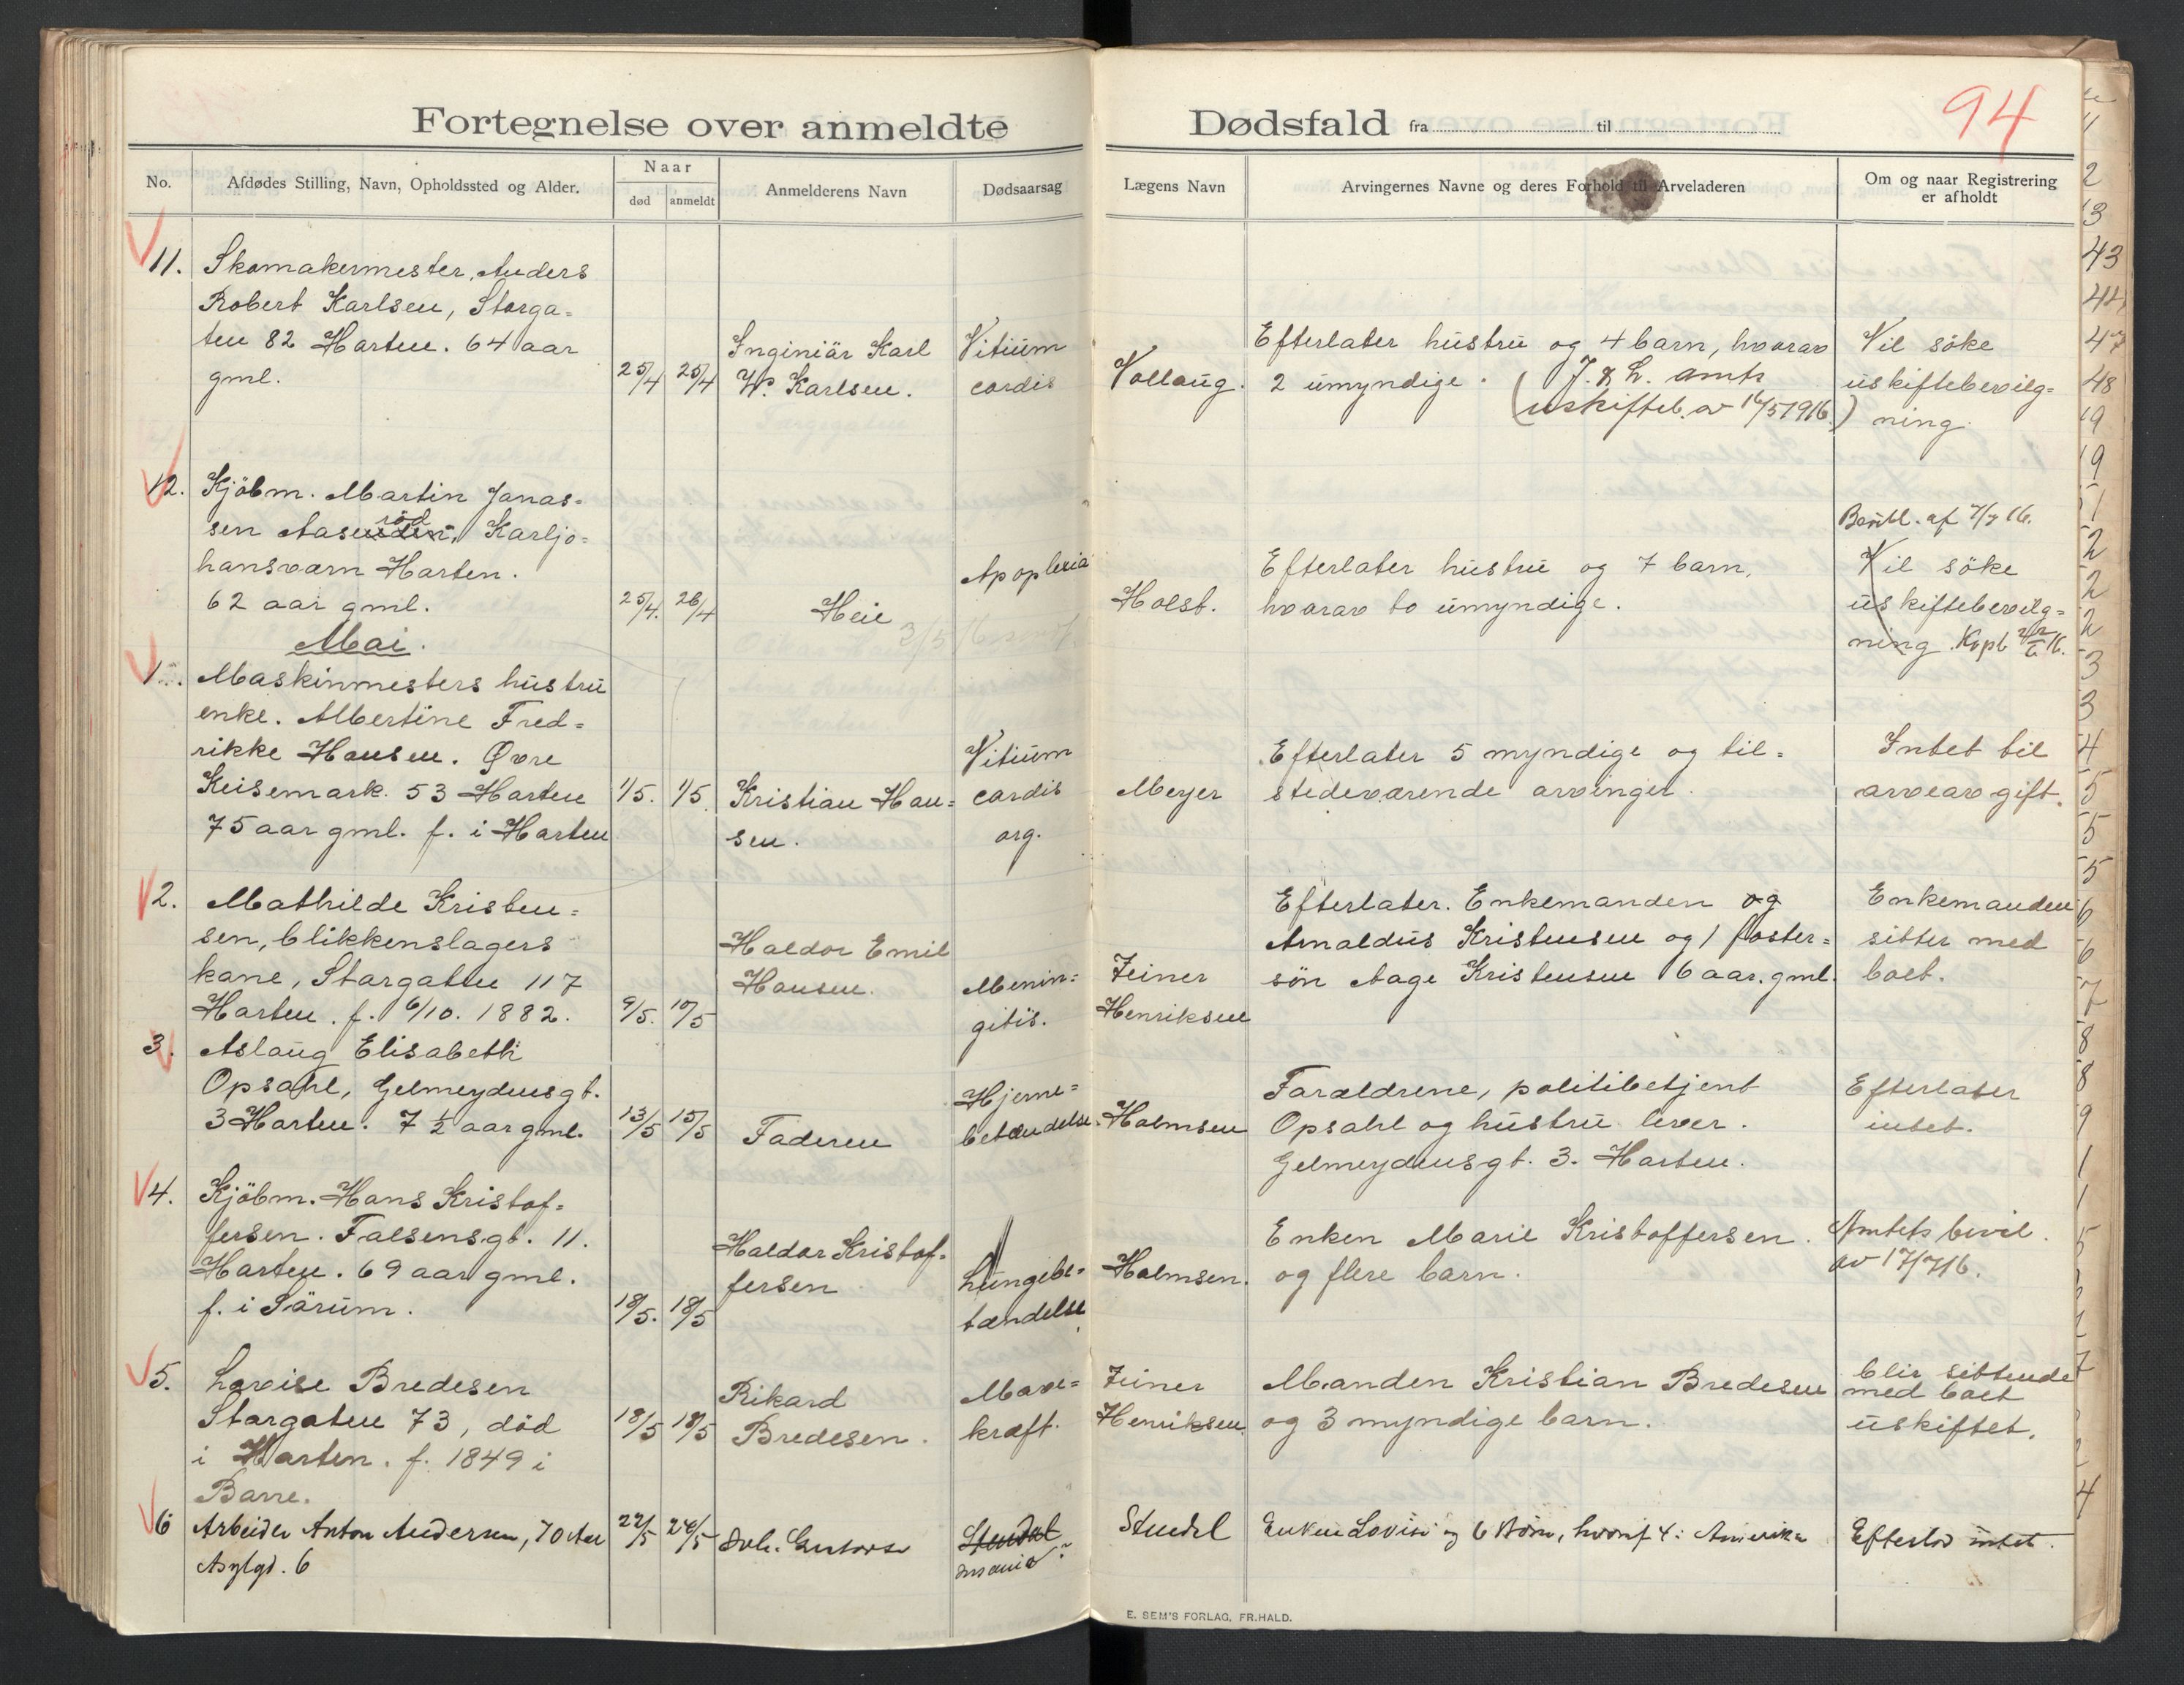 Fortegnelse over anmeldte Dødsfald fra til
94
No.
Afdødes Stilling, Navn, Opholdssted og Alder.
Naar
død
anmeldt
Anmelderens Navn
Dødsaarsag
Lægens Navn
Arvingernes Navne og deres Forhold til Arveladeren
Om og naar Registrering
er afholdt
11. Skomakermester, Anders
Robert Karlsen, Storga=
ten 82 Horten. 64 aar
gml.
25/4 25/4
Inginiär Karl
W. Karlsen.
Vitium
cordis
Vollaug.
Efterlater hustru og 4 barn, hvorav
2 umyndige.
(uskifteb. av 16/5 1916.)
Vil söke
uskiftebevilg=
ning.
12. Kjöbm. Martin Jonas=
sen Aasenden, Karljo=
röd
hansværn Horten.
62 aar gml.
25/4. 26/4
Heie
Apoplexia
Holst.
Efterlater hustru og 7 barn,
hvorav to umyndige.
Vil söke
uskiftebevilg=
ning.
Mai.
1. Maskinmesters hustru
enke. Albertine Fred=
rikke Hansen. Øvre
Keisemark. 53 Horten
75 aar gml. f. i Horten
1/5. 1/5.
Kristian Han=
sen.
Vitium
cordis
org.
Meyer
Efterlater 5 myndige og til=
stedeværende arvinger.
Intet til
arveavgift.
2. Mathilde Kristen=
sen, blikkenslagers
kone, Storgaten 117
Horten. f. 6/10. 1882.
9/5. 10/5
Haldor Emil
Hansen.
Menin=
gitis.
Zeiner
Henriksen
Efterlater. Enkemanden og
Arnoldus Kristensen og 1 foster=
sön Aage Kristensen 6 aar. gml.
Enkemanden
sitter med
boet.
3. Aslaug Elisabeth
Opsahl, Gelmeydensgt.
3 Horten. 7 ½ aar gml.
13/5 15/5
Faderen
Hjerne=
betændelse.
Holmsen
Foræeldrene, politibetjent
Opsahl og hustru lever.
Gelmeydensgt. 3. Horten.
Efterlater
intet.
4. Kjöbm. Hans Kristof=
fersen. Falsensgt. 11.
Horten. 69 aar gml.
f. i Sörum.
18/5. 18/5
Haldor Kristof=
fersen
Lungebe=
tændelse
Holmsen.
Enken Marie Kristoffersen.
og flere barn.
Amtets bevil.
av 17/7 16.
5. Lovise Bredesen
Storgaten 73, död
i Horten. f. 1849 i
Borre.
18/5 18/5
Rikard
Bredesen.
Mave=
kræft.
Zeiner
Henriksen
Manden Kristian Bredesen
og 3 myndige barn.
blir sittende
med boet
uskiftet.
6 Arbeider Anton Andersen, 70 Aar
Asylgd. 6
22/5 24/5
Stendel
Enken Lovise og 6 Börn, hvoraf 4 i Amerika
Efterlod intet.
E. SEM'S FORLAG, FR.HALD.